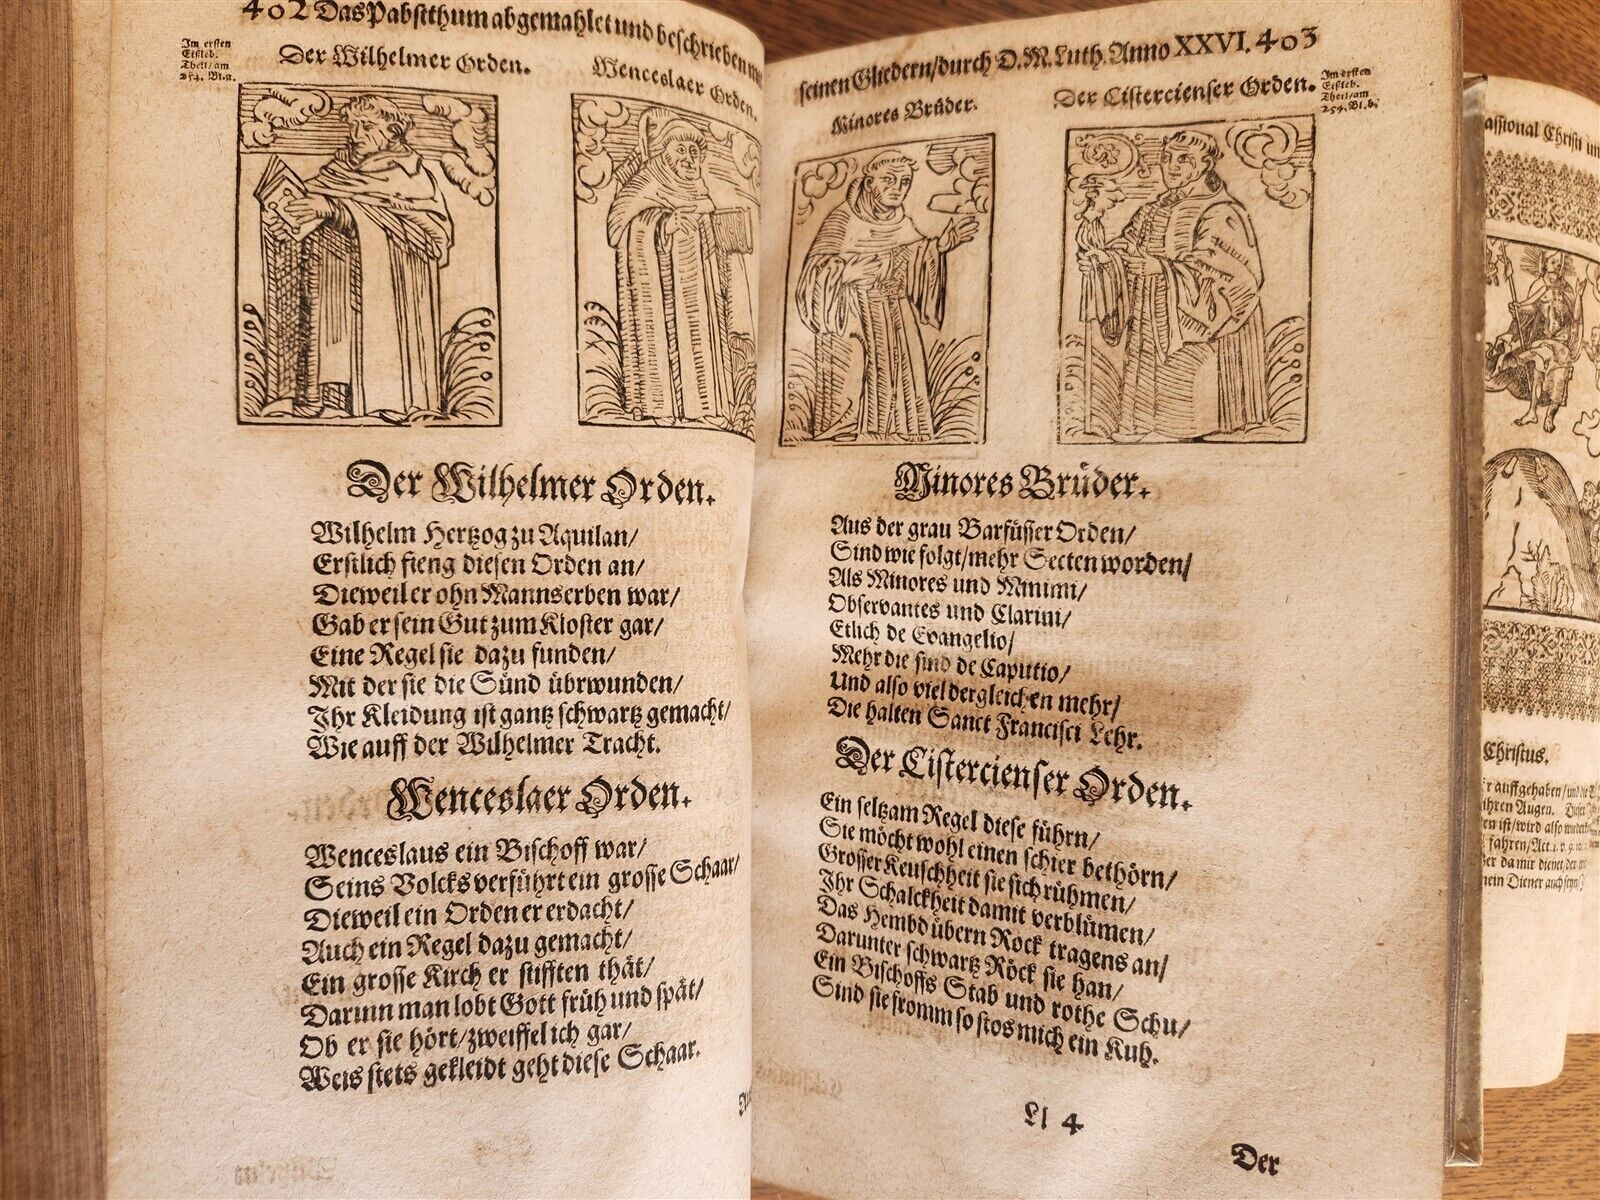 402 Das Pabstthum abgemahlet und beschrieben mit
Im ersten
Eißleb.
Theil/am
254. Bl.a.
Der Wilhelmer Orden.
Wenceslaer Orden.
Der Wilhelmer Orden.
Wilhelm Hertzog zu Aquilan/
Erstlich fieng diesen Orden an/
Dieweil er ohn Mannserben war/
Gab er sein Gut zum Kloster gar/
Eine Regel sie dazu funden/
Mit der sie die Sünd übrwunden/
Ihr Kleidung ist gantz schwartz gemacht/
Wie auff der Wilhelmer Tracht.
Wenceslaer Orden.
Wenceslaus ein Bischoff war/
Seins Volcks verführt ein grosse Schaar/
Dieweil ein Orden er erdacht/
Auch ein Regel dazu gemacht/
Ein grosse Kirch er stifften thät/
Darum man lobt Gott früh und spät/
Ob er sie hört/zweiffel ich gar/
Weis stets gekleidt geht diese Schaar.
seinen Gliedern/durch D.M.Luth. Anno XXVI. 403
Minores Brüder.
Der Cistercienser Orden.
Im ersten
Eißleb.
Theil/am
254. Bl.b.
Minores Brüder.
Aus der grau Barfüsser Orden/
Sind wie folgt/mehr Secten worden/
Als Minores und Minimi/
Observantes und Clarini/
Etlich de Evangelio/
Mehr die sind de Caputio/
Und also viel dergleichen mehr/
Die halten Sanct Francisci Lehr.
Der Cistercienser Orden.
Ein seltzam Regel diese führn/
Sie möcht wohl einen schier bethörn/
Grosser Keuschheit sie sich rühmen/
Ihr Schalckheit damit verblümen/
Das Hembd übern Rock tragens an/
Darunter schwartz Röck sie han/
Ein Bischoffs Stab und rothe Schu/
Sind sie fromm so stos mich ein Kuh.
Ll 4
Der
assional Christi un
Christus.
r auffgehaben/und die
ihren Augen.
en ist/wird also wieder
fahren/Act. 1. v. 9. 10.
er da mir dienet/der
mein Diener auch seyn/